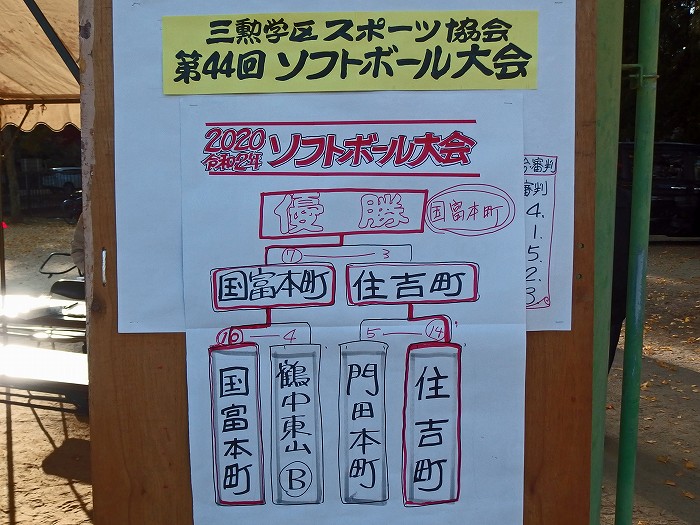 三勲学区 スポーツ協会
第44回 ソフトボール大会
2020
令和2年
ソフトボール大会
優勝
国富本町
審判
審判
4.
1.
5.
2.
3.
⑰ 3
国富本町
住吉町
⑯ 4
5 ⑭
国富本町
鶴中東山Ⓑ
門田本町
住吉町